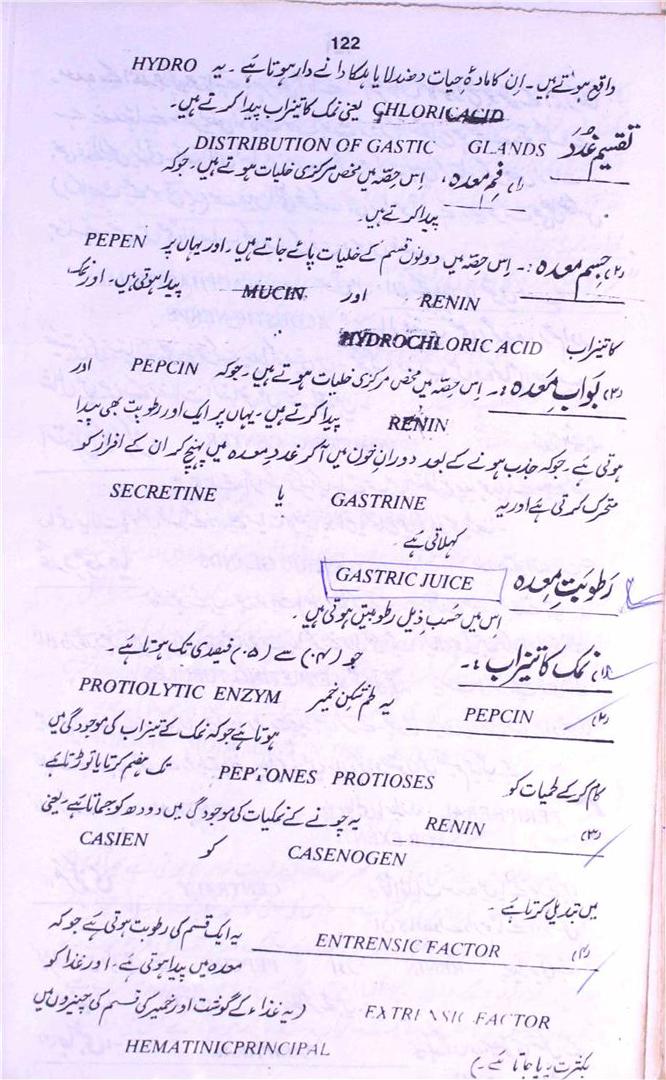 122
واقع ہوتے ہیں۔ ان کا مادۂ حیات دھندلا یا ہلکا دانے دار ہوتا ہے۔ یہ HYDRO
CHLORICACID یعنی نمک کا تیزاب پیدا کرتے ہیں۔
تقسیم غدد DISTRIBUTION OF GASTIC GLANDS
(۱) فم معدہ، اس حصّہ میں محض مرکزی خلیات ہوتے ہیں۔ جو کہ
پیدا کرتے ہیں۔
(۲) جسم معدہ :۔ اِس حصّہ میں دونوں قسم کے خلیات پائے جاتے ہیں۔ اور یہاں پر PEPEN
RENIN اور MUCIN پیدا ہوتی ہیں۔ اور نمک
کا تیزاب HYDROCHLORIC ACID
(۳) بواب معدہ :۔ اِس حصّہ میں محض مرکزی خلیات ہوتے ہیں۔ جو کہ PEPCIN اور
RENIN پیدا کرتے ہیں۔ یہاں پر ایک اور رطوبت بھی پیدا
ہوتی ہے۔ جو کہ جذب ہونے کے بعد دوران خون میں آکر غدد معدہ میں پہنچ کر ان کے افراز کو
متحرک کرتی ہے اور یہ GASTRINE یا SECRETINE
کہلاتی ہے
رطوبتِ معدہ GASTRIC JUICE
اِس میں حسب ذیل رطوبتیں ہوتی ہیں۔
(۱) نمک کا تیزاب :۔ جو (۰۴) سے (۰۵) فیصدی تک ہوتا ہے۔
(۲) PEPCIN یہ لحم شکن خمیر PROTIOLYTIC ENZYM
ہوتا ہے جو کہ نمک کے تیزاب کی موجودگی میں
کام کر کے لحمیات کو PEPTONES PROTIOSES تک ہضم کرتا یا توڑتا ہے
(۳) RENIN یہ چونے کے نمکیات کی موجودگی میں دودھ کو جماتا ہے۔ یعنی
CASENOGEN کو CASIEN
میں تبدیل کرتا ہے۔
(۴) ENTRENSIC FACTOR یہ ایک قسم کی رطوبت ہوتی ہے جو کہ
معدہ میں پیدا ہوتی ہے۔ اور غذا کو
EXTRINSIC FACTOR (یہ غذاء کے گوشت اور خمیر کی قسم کی چیزوں میں
بکثرت پایا جاتا ہے۔) HEMATINICPRINCIPAL